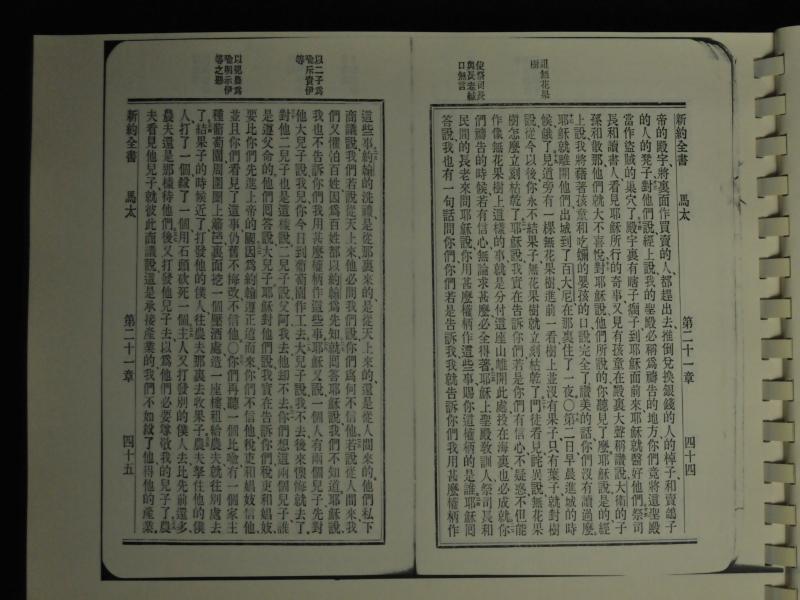 新約全書 馬太 第二十一章 四十四
詛無花果樹
使祭司長與長老緘口無言
帝的殿宇、將裏面作買賣的人、都趕出去、推倒兌換銀錢的人的棹子、和賣鴿子
的人的凳子、對他們說、經上說、我的聖殿、必稱爲禱告的地方、你們竟將這聖殿
當作盜賊的巢穴了。殿宇裏有瞎子瘸子到耶穌面前來、耶穌就醫好他們。祭司
長和讀書人看見耶穌所行的奇事、又見有孩童在殿裏大聲稱讚說、大衛的子
孫和散那、他們就大不喜悅、對耶穌說、他們所說的、你聽見了麽、耶穌說、是的、經
上說、我將藉著孩童和吃嬭的嬰孩的口、說完全了讚美的話、你們沒有讀過麽。
耶穌就離開他們、出城到了百大尼、在那裏住了一夜。〇第二日早晨進城的時
候、餓了、見道旁有一棵無花果樹、進前一看、樹上並沒有果子、只有葉子、就對樹
說、從今以後、你永不結果子、無花果樹就立刻枯乾了。門徒看見詫異說、無花果
樹怎麽立刻枯乾了。耶穌說、我實在告訴你們、若是你們有信心、不疑惑、不但能
作像無花果樹上這樣的事、就是分付這座山、離開此處、投在海裏、也必成就、你
們禱告的時候、若有信心、無論求甚麽、必全得著。耶穌上聖殿敎訓人、祭司長和
民間的長老來問耶穌說、你用甚麽權柄作這些事、賜你這權柄的是誰。耶穌囘
答說、我也有一句話問你們、你們若是告訴我、我就告訴你們我用甚麽權柄作
以二子爲喩斥責伊等
以兇農爲喩明示伊等之懸
這些事、約翰的洗禮、是從那裏來的、是從天上來的、還是從人間來的、他們私下
商議說、我們若說從天上來、他必問我們說、你們爲何不信他、若說從人間來、我
們又懼怕百姓、因爲百姓都以約翰爲先知、就囘答耶穌說、我們不知道、耶穌說、
我也不告訴你們我用甚麽權柄作這些事。耶穌又說、一個人有兩個兒子、先對
他大兒子說、我兒、你今日到葡萄園作工去、大兒子說、我不去、後來懊悔、就去了。
對他二兒子也是這樣說、二兒子說、父阿、我去、他却不去、你們想這兩個兒子誰
是遵父命的、他們囘答說、大兒子、耶穌對他們說、我實在告訴你們、稅吏和娼妓、
要比你們先進上帝的國、因爲約翰遵正道而來、你們不信他、稅吏和娼妓信他、
並且你們看見了這事、仍舊不悔改不信他。〇你們再聽一個比喩、有一個家主、
種葡萄園、周圍圈上籬笆、裏面挖一個壓酒處、造一座樓、租給農夫、就往別處去
了。結果子的時候近了、打發他的僕人往農夫那裏去收果子、農夫拏住他的僕
人、打了一個、殺了一個、用石頭砍死一個。主人又打發別的僕人去、比先前還多、
農夫還是那樣待他們。後又打發他兒子去、以爲他們必要尊敬我的兒子了、農
夫看見他兒子、就彼此商議說、這是承接產業的、我們不如殺了他、得他的產業。
新約全書 馬太 第二十一章 四十五